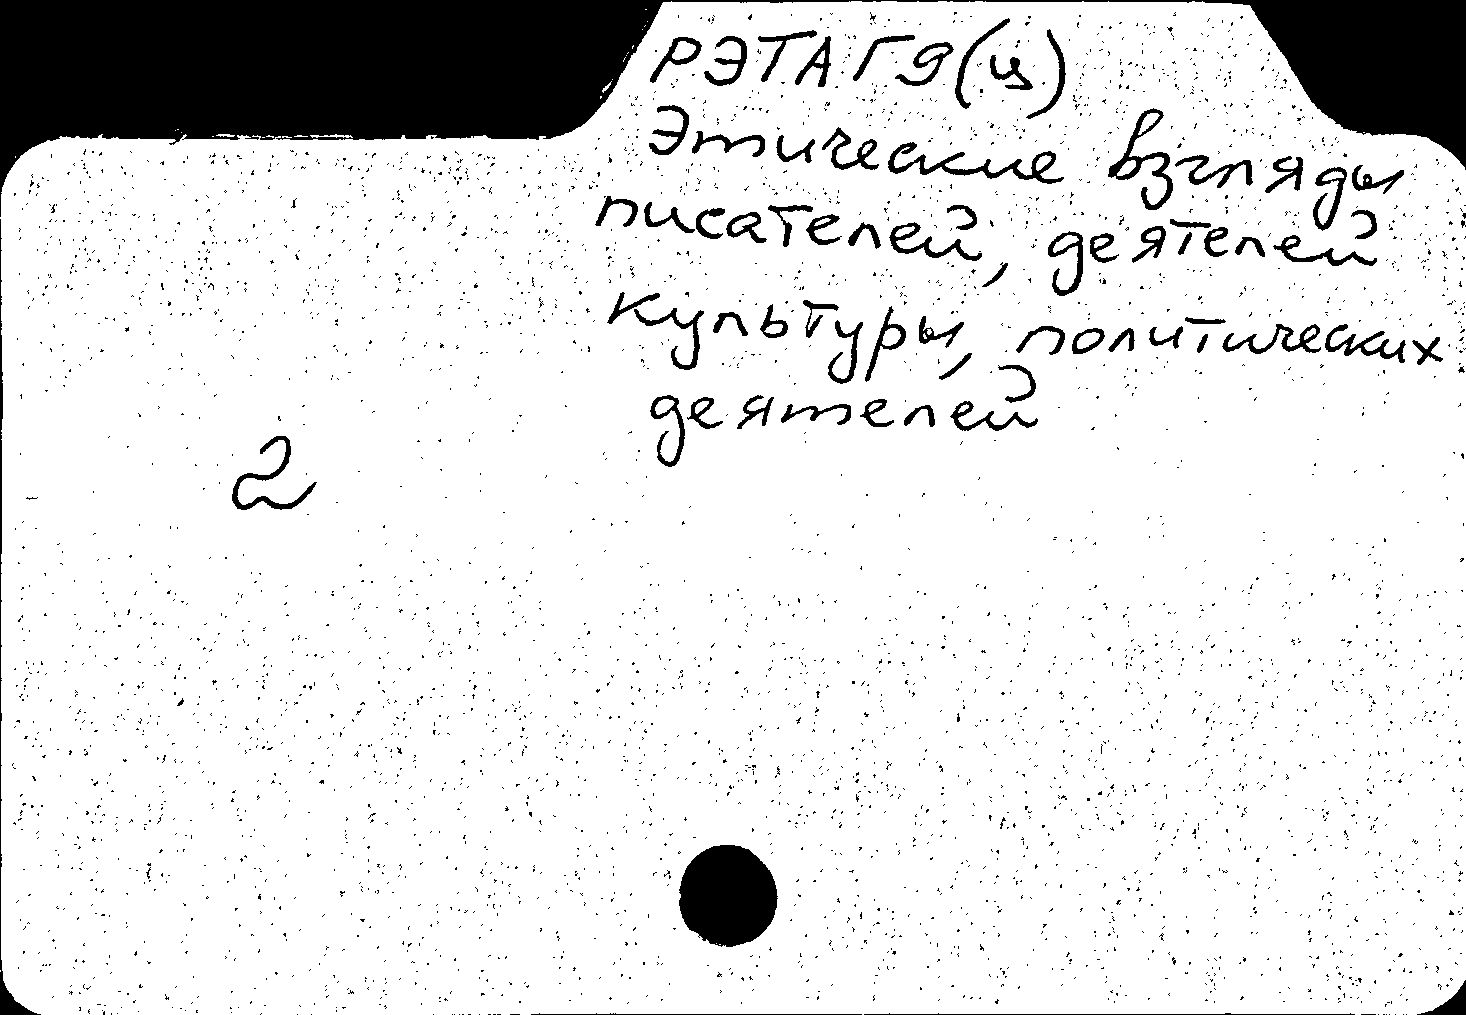 РЭТАГ9(ц)
Этические взгляды
писателей, деятелей
культуры, политических
деятелей
2